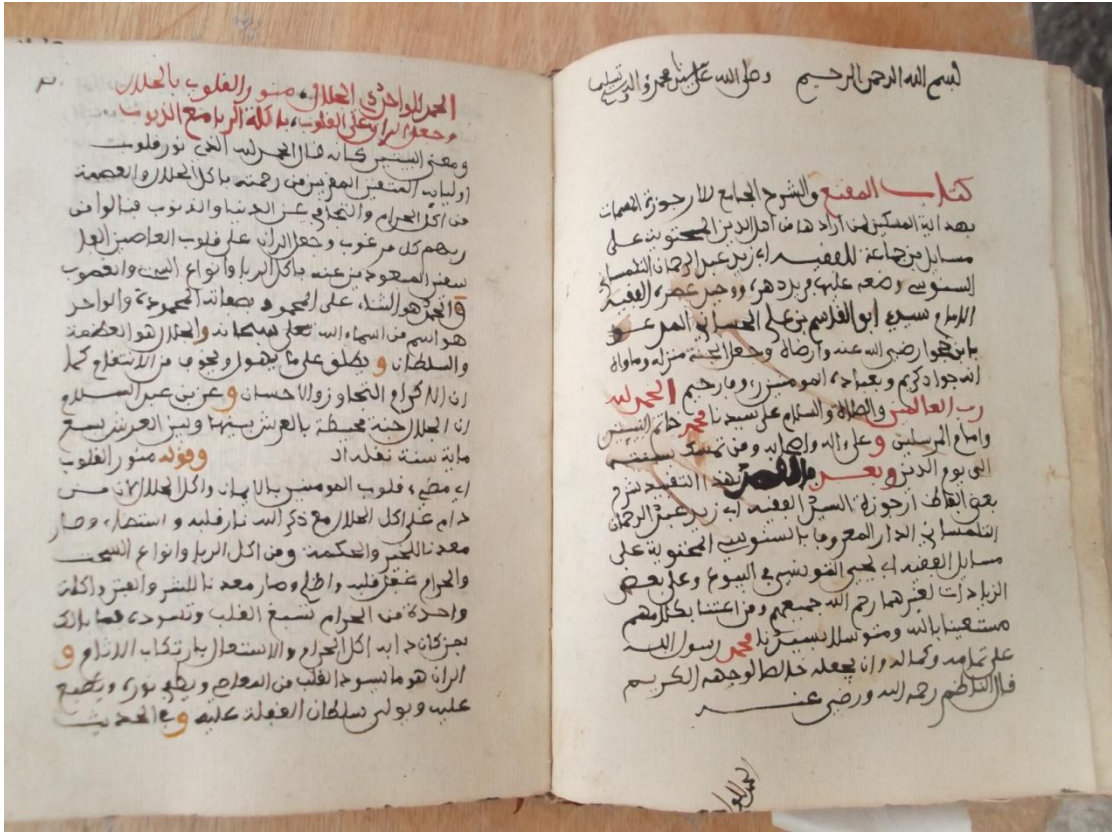 بسم الله الرحمن الرحيم وصلى الله على سيدنا محمد وآله وسلم تسليما
كتاب المقنع والشرح الجامع لارجوزة المهمات
بهداية المسكين لمن أرادها من أهل الدين المحتوية على
مسايل بن جماعة للفقيه أبي زيد عبد الرحمان التلمساني
السنوسي وضعه عليها فريد دهره ووحيد عصره الفقيه
الامام سيدي أبو القاسم بن علي الحساني المدعو
بابن خجوا رضي الله عنه وأرضاه وجعل الجنة منزله ومأواه
انه جواد كريم وبعباده المومنين رءوف رحيم الحمد لله
رب العالمين والصلاة والسلام على سيدنا محمد خاتم النبيين
وامام المرسلين وعلى ءاله وأصحابه ومن تمسك بسنته
الى يوم الدين وبعد بهذا التقييد شرح
بعض ألفاظ ارجوزة الشيخ الفقيه أبي زيد عبد الرحمان
التلمساني الدار المعروف بالسنوسي المحتوية على
مسايل الفقيه أبي يحيى التونسي في البيوع وعلى بعض
الزيادات لغيرهما رحم الله جميعهم ومن اعتنا بكلامهم
مستعينا بالله ومتوسلا بسيدنا محمد رسول الله
على تمامه وكماله وان يجعله خالصا لوجهه الكريم
قال الناظم رحمه الله ورضي عنه
الحمد للوا
الحمد للواحد ذي الجلال منور القلوب بالحلال
وجعل الران على القلوب باكلة الربا مع الذنوب
ومعنى البيتين كأنه قال الحمد لله الذي نور قلوب
أوليايه المتقين المقربين من رحمته بأكل الحلال والعصمة
من أكل الحرام والتجافي عن الدنيا والذنوب فنالوا من
ربهم كل مرغوب وجعل الران على قلوب العاصين
المبعودين عنه بأكل الربا وأنواع السحت والغصوب
والحمد هو الثناء على المحمود بصفاته المحمودة والواحد
هو اسم من أسماء الله تعلى سبحانه والجلال هو العظمة
والسلطان ويطلق على ما يهول ويخوف من الانتقام كما
ان الاكرام التجاوز والاحسان وعن بن عبد السلام
ان الجلال جنة محيطة بالعرش بينها وبين العرش سبع
ماية سنة نقله اد وقوله منور القلوب
أي مضيء قلوب المومنين بالايمان وأكل الحلال لان من
دام على أكل الحلال مع ذكر الله نار قلبه و وصار
معدنا للخير والحكمة ومن أكل الربا وأنواع السحت
والحرام قلبه واظلم وصار معدنا للشر والفتن واكلة
واحدة من الحرام القلب وتسوده فما بالك
بمن كان دابه أكل الحرام والاستعمال بارتكاب الاثام و
الران هو ما يسود القلب من المعاصي ويطفي نوره ويطبع
عليه ويولي سلطان الغفلة عليه وفي الحديث